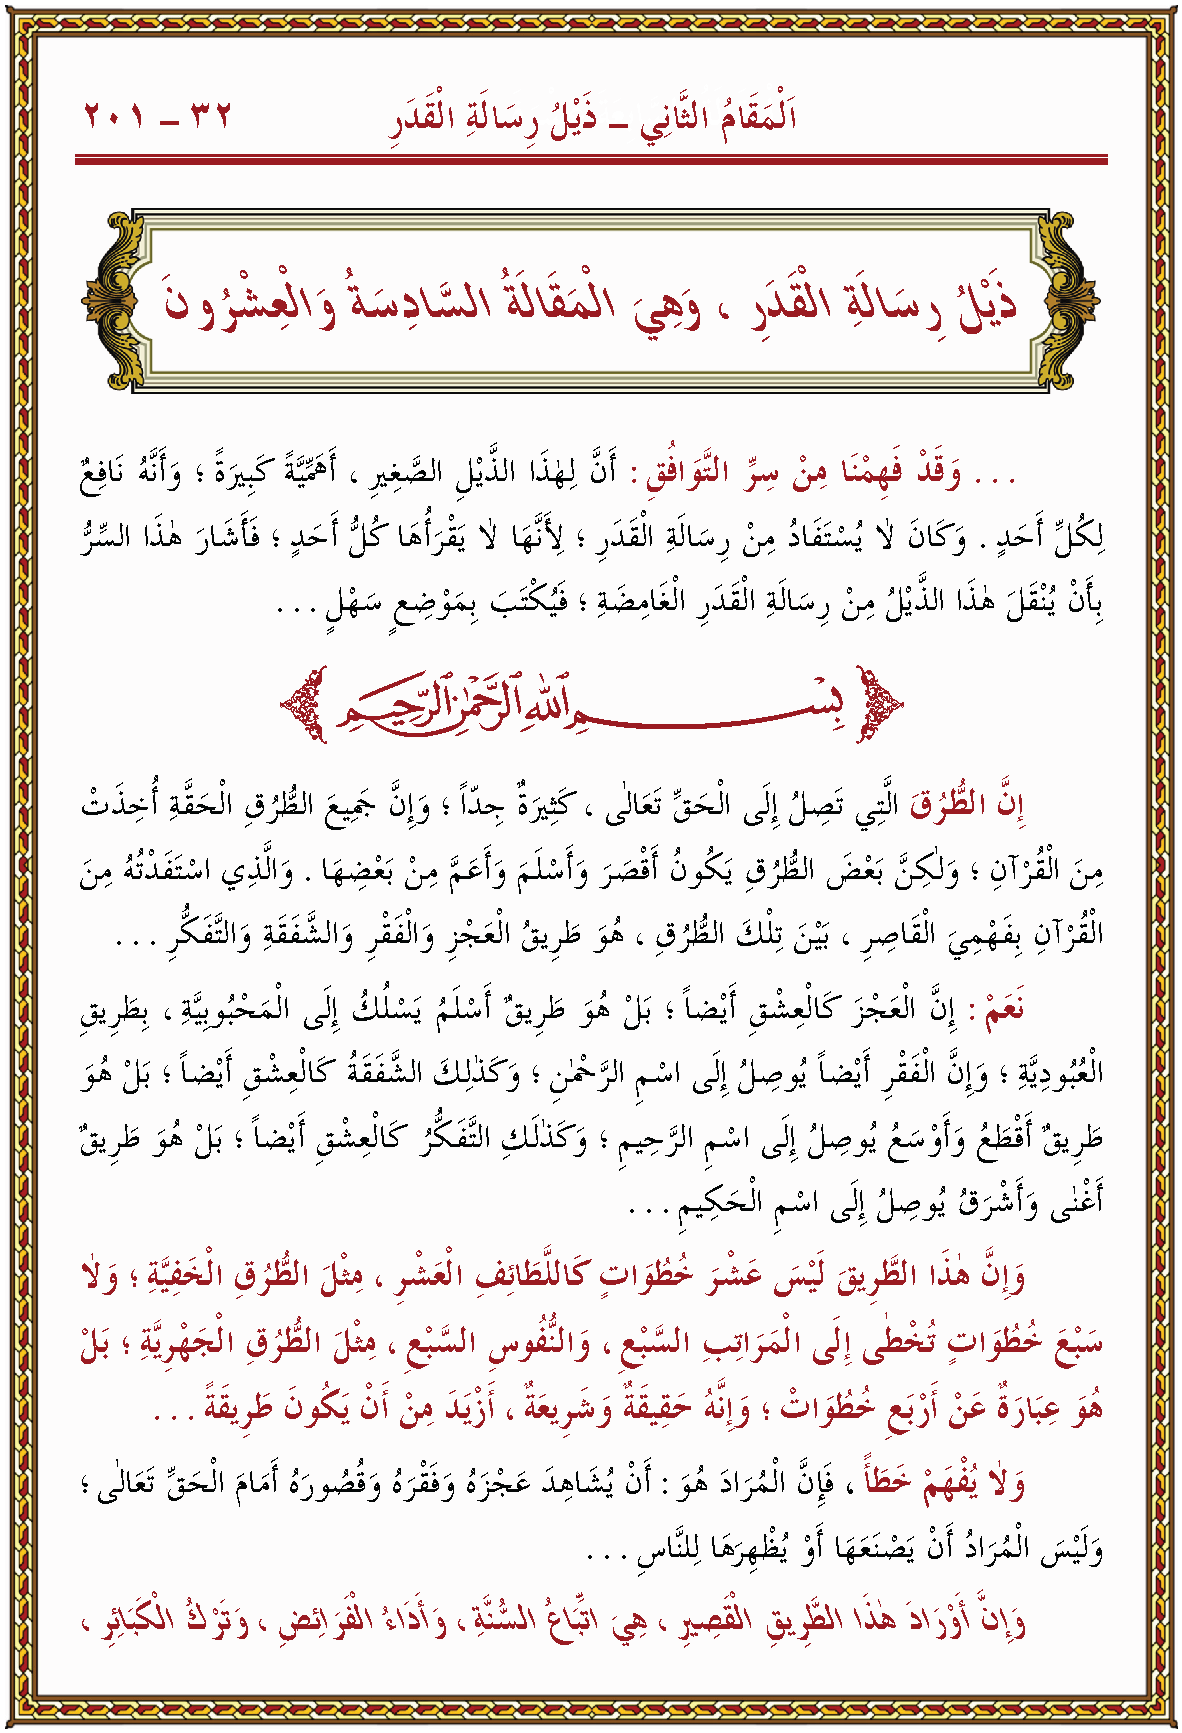 اَلْمَقَامُ الثَّانِي – ذَيْلُ رِسَالَةِ الْقَدَرِ ٣٢ – ٢٠١
ذَيْلُ رِسَالَةِ الْقَدَرِ ، وَهِيَ الْمَقَالَةُ السَّادِسَةُ وَالْعِشْرُونَ
. . . وَقَدْ فَهِمْنَا مِنْ سِرِّ التَّوَافُقِ : أَنَّ لِهٰذَا الذَّيْلِ الصَّغِيرِ ، أَهَمِّيَّةً كَبِيرَةً ؛ وَأَنَّهُ نَافِعٌ
لِكُلِّ أَحَدٍ . وَكَانَ لاٰ يُسْتَفَادُ مِنْ رِسَالَةِ الْقَدَرِ ؛ لِأَنَّهَا لاٰ يَقْرَأُهَا كُلُّ أَحَدٍ ؛ فَأَشَارَ هٰذَا السِّرُّ
بِأَنْ يُنْقَلَ هٰذَا الذَّيْلُ مِنْ رِسَالَةِ الْقَدَرِ الْغَامِضَةِ ؛ فَيُكْتَبَ بِمَوْضِعٍ سَهْلٍ . . .
بِسْمِ اللهِ الرَّحْمٰنِ الرَّحِيمِ
إِنَّ الطُّرُقَ الَّتِي تَصِلُ إِلَى الْحَقِّ تَعَالٰى ، كَثِيرَةٌ جِدّاً ؛ وَإِنَّ جَمِيعَ الطُّرُقِ الْحَقَّةِ أُخِذَتْ
مِنَ الْقُرْآنِ ؛ وَلٰكِنَّ بَعْضَ الطُّرُقِ يَكُونُ أَقْصَرَ وَأَسْلَمَ وَأَعَمَّ مِنْ بَعْضِهَا . وَالَّذِي اسْتَفَدْتُهُ مِنَ
الْقُرْآنِ بِفَهْمِيَ الْقَاصِرِ ، بَيْنَ تِلْكَ الطُّرُقِ ، هُوَ طَرِيقُ الْعَجْزِ وَالْفَقْرِ وَالشَّفَقَةِ وَالتَّفَكُّرِ . . .
نَعَمْ : إِنَّ الْعَجْزَ كَالْعِشْقِ أَيْضاً ؛ بَلْ هُوَ طَرِيقٌ أَسْلَمُ يَسْلُكُ إِلَى الْمَحْبُوبِيَّةِ ، بِطَرِيقِ
الْعُبُودِيَّةِ ؛ وَإِنَّ الْفَقْرَ أَيْضاً يُوصِلُ إِلَى اسْمِ الرَّحْمٰنِ ؛ وَكَذٰلِكَ الشَّفَقَةُ كَالْعِشْقِ أَيْضاً ؛ بَلْ هُوَ
طَرِيقٌ أَقْطَعُ وَأَوْسَعُ يُوصِلُ إِلَى اسْمِ الرَّحِيمِ ؛ وَكَذٰلَكِ التَّفَكُّرُ كَالْعِشْقِ أَيْضاً ؛ بَلْ هُوَ طَرِيقٌ
أَغْنٰى وَأَشْرَقُ يُوصِلُ إِلَى اسْمِ الْحَكِيمِ . . .
وَإِنَّ هٰذَا الطَّرِيقَ لَيْسَ عَشْرَ خُطُوَاتٍ كَاللَّطَائِفِ الْعَشْرِ ، مِثْلَ الطُّرُقِ الْخَفِيَّةِ ؛ وَلاٰ
سَبْعَ خُطُوَاتٍ تُخْطٰى إِلَى الْمَرَاتِبِ السَّبْعِ ، وَالنُّفُوسِ السَّبْعِ ، مِثْلَ الطُّرُقِ الْجَهْرِيَّةِ ؛ بَلْ
هُوَ عِبَارَةٌ عَنْ أَرْبَعِ خُطُوَاتْ ؛ وَإِنَّهُ حَقِيقَةٌ وَشَرِيعَةٌ ، أَزْيَدَ مِنْ أَنْ يَكُونَ طَرِيقَةً . . .
وَلاٰ يُفْهَمْ خَطَأً ، فَإِنَّ الْمُرَادَ هُوَ : أَنْ يُشَاهِدَ عَجْزَهُ وَفَقْرَهُ وَقُصُورَهُ أَمَامَ الْحَقِّ تَعَالٰى ؛
وَلَيْسَ الْمُرَادُ أَنْ يَصْنَعَهَا أَوْ يُظْهِرَهَا لِلنَّاسِ . . .
وَإِنَّ أَوْرَادَ هٰذَا الطَّرِيقِ الْقَصِيرِ ، هِيَ اتِّبَاعُ السُّنَّةِ ، وَأَدَاءُ الْفَرَائِضِ ، وَتَرْكُ الْكَبَائِرِ ،